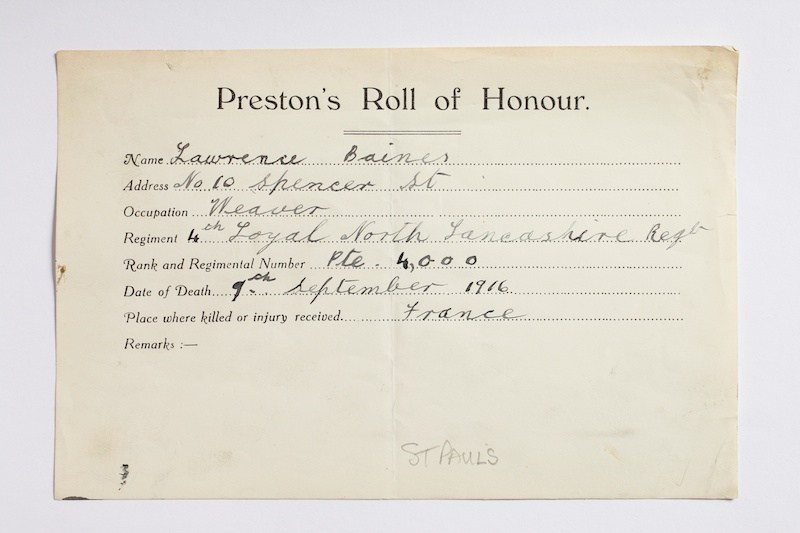 Preston's Roll of Honour.
Name Lawrence Baines
Address No 10 Spencer St
Occupation Weaver
Regiment 4th Loyal North Lancashire Regt
Rank and Regimental Number Pte. 4,000
Date of Death 9th September 1916
Place where killed or injury received France
Remarks :—
ST PAUL'S